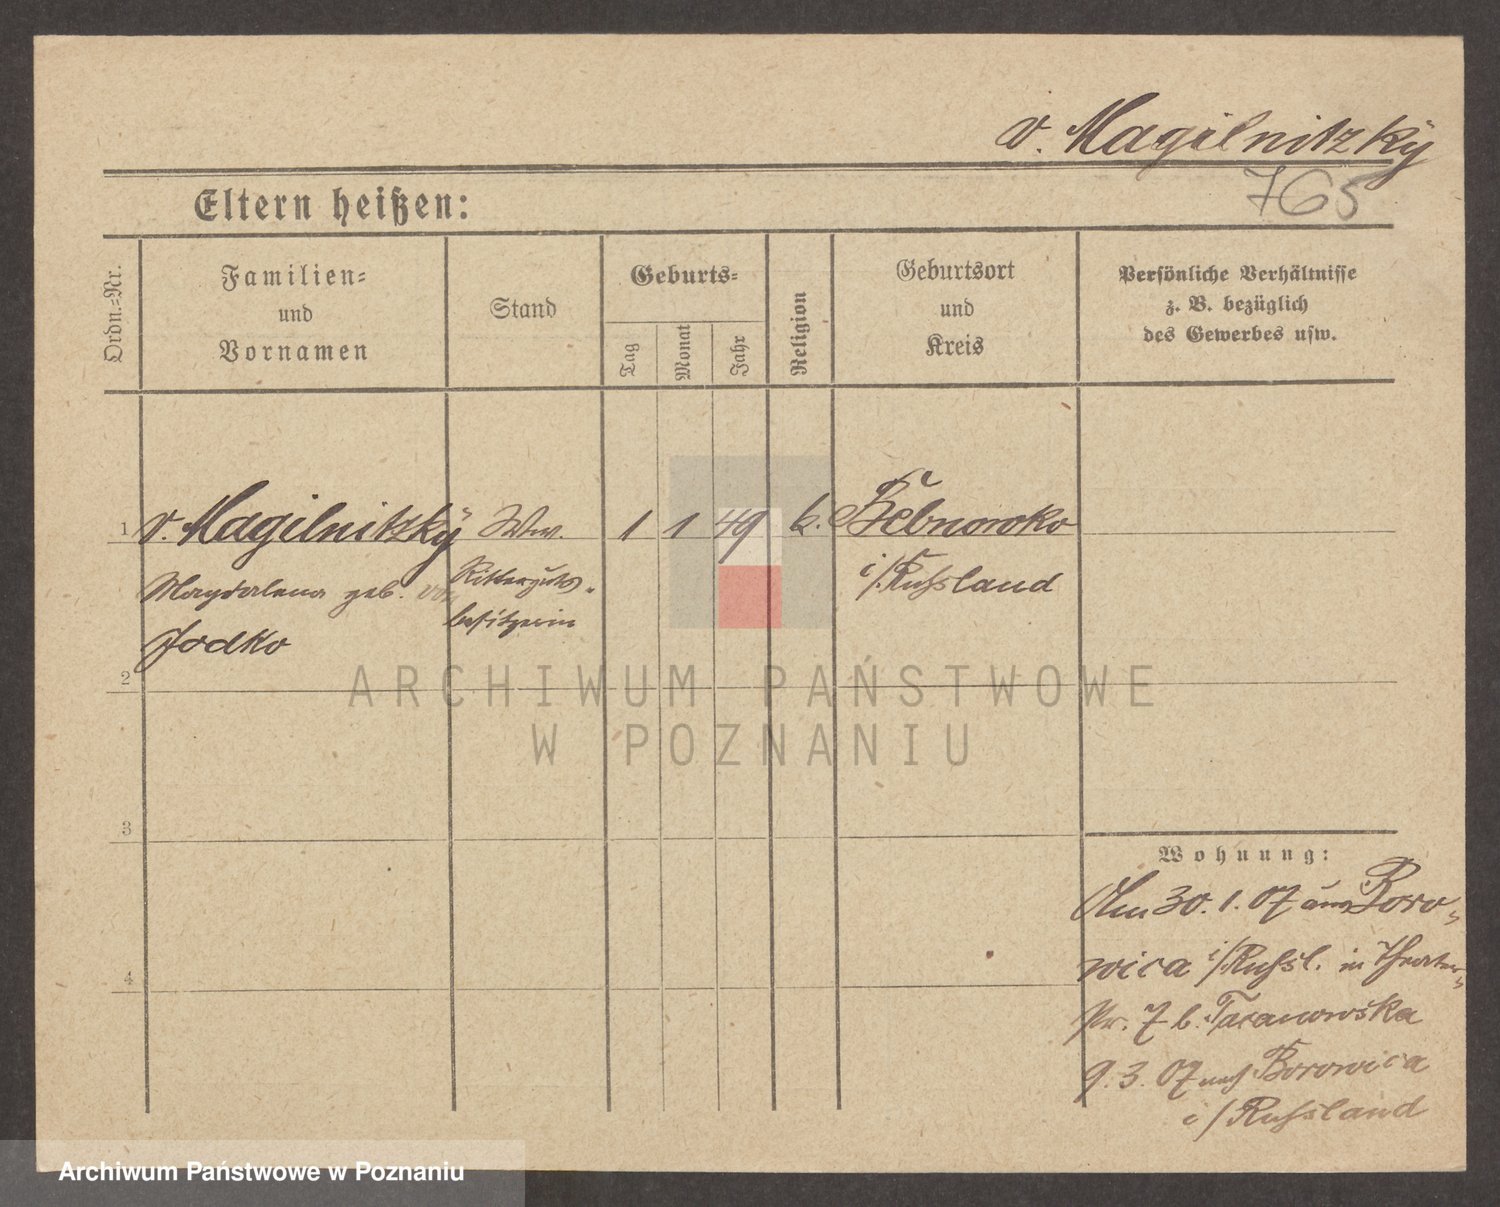 v. Magilnitzkÿ
765
Eltern heißen:
Ordn.-Nr.
Familien-
und
Vornamen
Stand
Geburts-
Tag
Monat
Jahr
Religion
Geburtsort
und
Kreis
Persönliche Verhältnisse
z. B. bezüglich
des Gewerbes usw.
1 v. Magilnitzkÿ Ww. 1 1 49 k.
i/Russland
Magdalena geb. von
Jodko
Ritterguts-
besitzerin
2
3
4
Wohnung:
Am 30. 1. 07 aus Boro-
wica i/Russl. in Theater-
str. 7 b. Taranowska
9. 3. 07 nach Borowica
i/Russland
ARCHIWUM PAŃSTWOWE
W POZNANIU
Archiwum Państwowe w Poznaniu